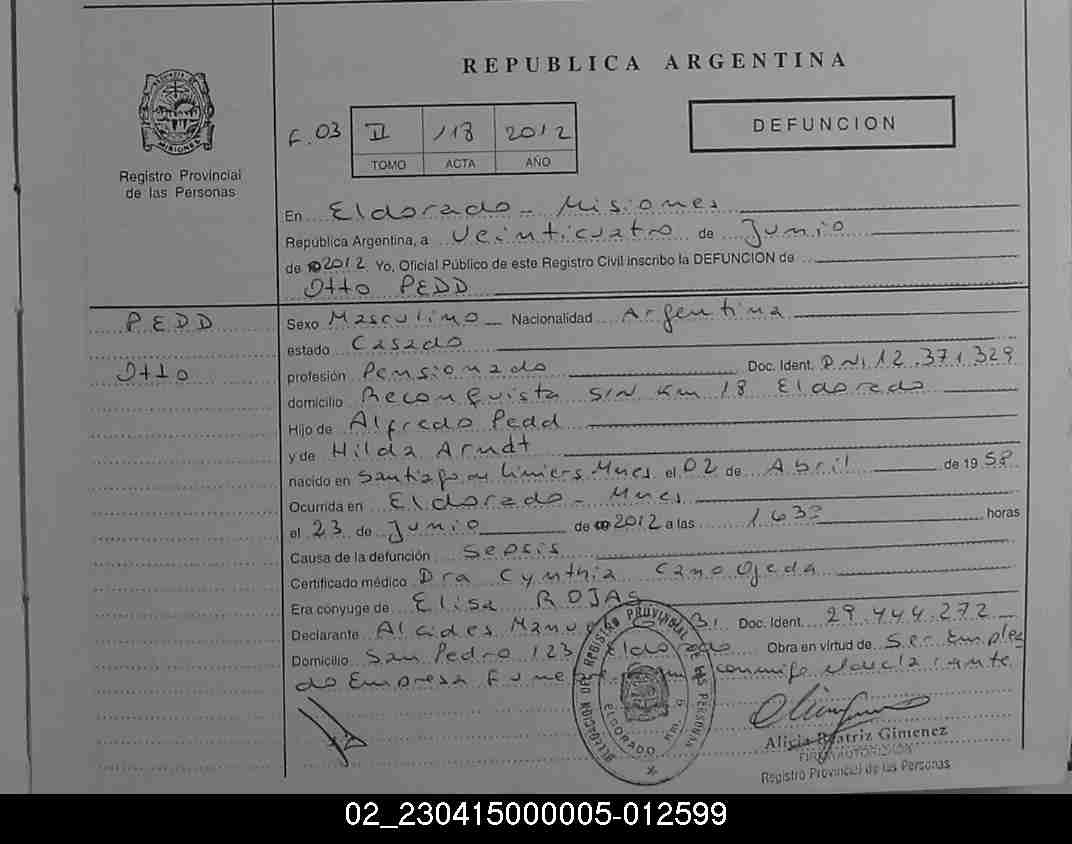 REPUBLICA ARGENTINA
PROVINCIA DE MISIONES
Registro Provincial
de las Personas
F. 03 II 118 2012
TOMO ACTA AÑO
DEFUNCION
En Eldorado - Misiones
República Argentina, a Veinticuatro de Junio
de 2012 Yo, Oficial Público de este Registro Civil inscribo la DEFUNCION de
Otto PEDD
PEDD
Otto
Sexo Masculino Nacionalidad Argentina
estado Casado
profesión Pensionado Doc. Ident. DNI 12.371.329
domicilio Reconquista S/N Km 18 Eldorado
Hijo de Alfredo Pedd
y de Hilda Arndt
nacido en Santiago de Liniers Mnes el 02 de Abril de 1958
Ocurrida en Eldorado - Mnes
el 23 de Junio de 2012 a las 16 30 horas
Causa de la defunción Sepsis
Certificado médico Dra Cynthia Cano Ojeda
Era cónyuge de Elisa ROJAS
Declarante Alcides Doc. Ident. 29.444.272
Domicilio San Pedro 123 Eldorado Obra en virtud de Ser Emplea
do Empresa conmigo el declarante
DELEGACION DEL REGISTRO PROVINCIAL DE LAS PERSONAS
ELDORADO
Alicia Beatriz Gimenez
FIRMA AUTORIZADA
Registro Provincial de las Personas
02_230415000005-012599